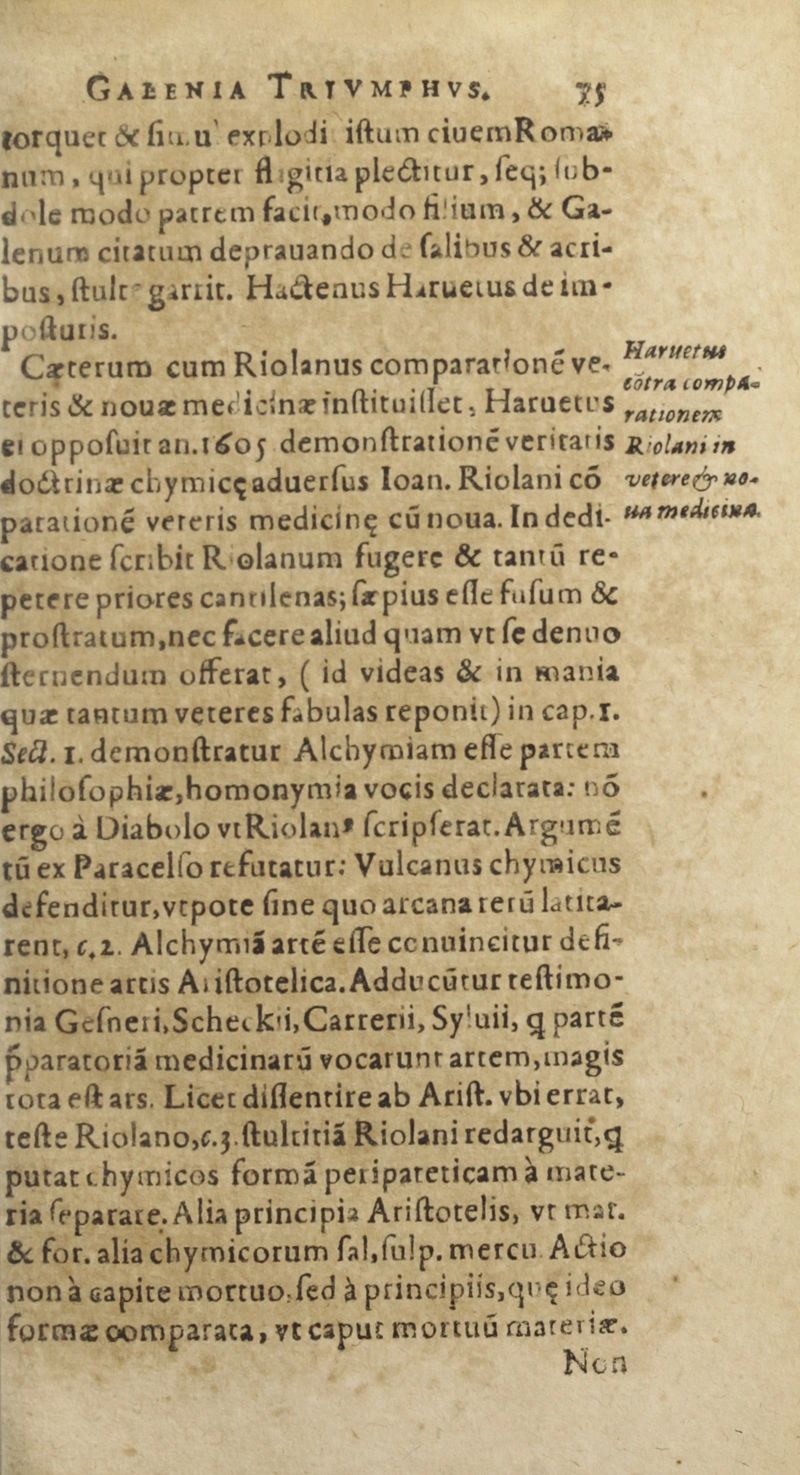 GALENIA TRIVMPHVS. 75
torquet & ſimul exploditiſtum ciuemRoma-
num, qui propter flagitia plectitur, ſeq; ſub-
dole modo patrem facit, modo filium, & Ga-
lenum citatum deprauando de ſalibus & acri-
bus, ſtulte garrit. Hactenus Haruetus de im-
poſturis.
Cæterum cum Riolanus comparationẽ ve-
teris & nouæ medicinæ inſtituiſſet, Haruetus
ei oppoſuit an.1605 demonſtrationẽ veritatis
doctrinæ chymicę aduerſus Ioan. Riolani cõ
parationẽ veteris medicinę cũ noua. In dedi-
catione ſcribit Riolanum fugere & tantũ re-
petere priores cantilenas; ſæpius eſſe fuſum &
proſtratum, nec facere aliud quam vt ſe denuo
ſternendum offerat, ( id videas & in mania
quæ tantum veteres fabulas reponit) in cap.1.
Sect. 1. demonſtratur Alchymiam eſſe partem
philoſophiæ, homonymia vocis declarata: nõ
ergo à Diabolo vt Riolanꝰ ſcripſerat. Argumẽ
tũ ex Paracelſo refutatur: Vulcanus chymicus
defenditur, vtpote ſine quo arcana rerũ latita-
rent, c.2. Alchymiã artẽ eſſe conuincitur defi-
nitione artis Ariſtotelica. Adducũtur teſtimo-
nia Geſneri, Scheckii, Carrerii, Syluii, q partẽ
p̃paratoriã medicinarũ vocarunt artem, magis
tota eſt ars. Licet diſſentire ab Ariſt. vbi errat,
teſte Riolano, c.3. ſtultitiã Riolani redarguit, q
putat chymicos formã peripateticam à mate-
ria ſeparare. Alia principia Ariſtotelis, vt mat.
& for. alia chymicorum ſal, ſulp. mercu. Actio
non à capite mortuo, ſed à principiis, quę ideo
formæ comparata, vt caput mortuũ materiæ.
Non
Haruetus
cõtra compa-
rationem
Riolani in
vetere & no-
ua medicina.